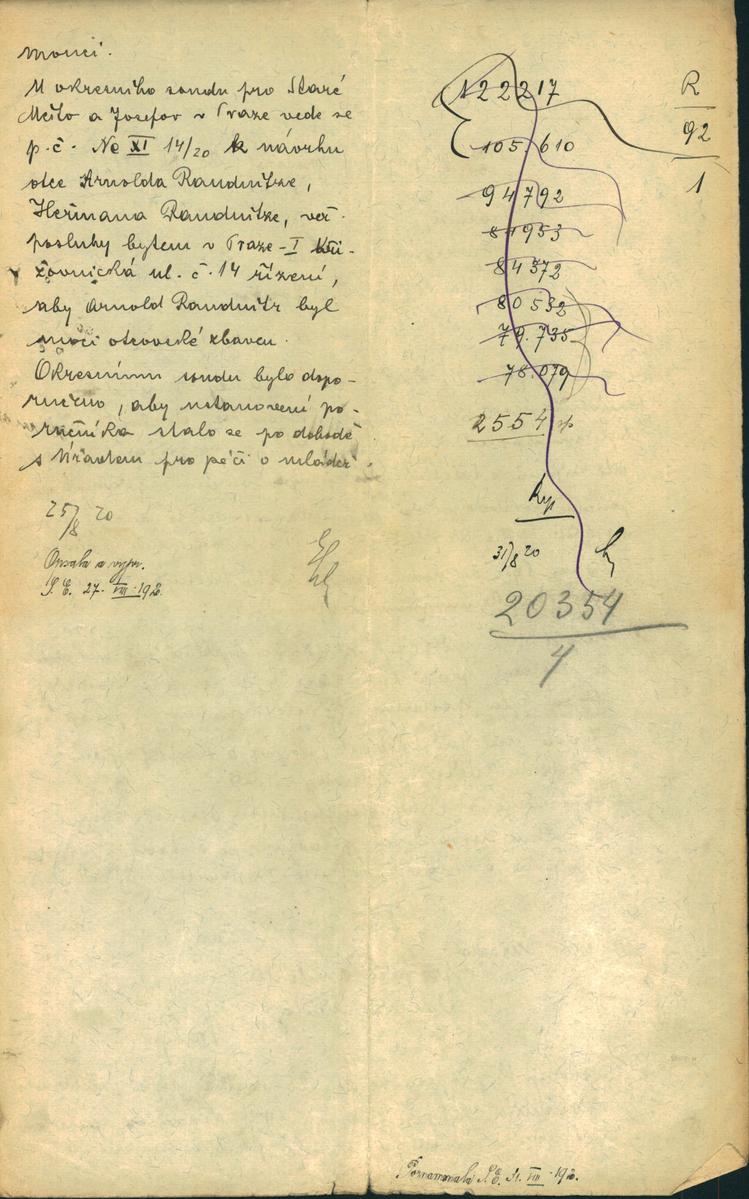 mouci.
U okresního soudu pro Staré
Město a Josefov v Praze vede se
p. č. Nc XI 14/20 k návrhu
otce Arnolda Raudnitze,
Heřmana Raudnitze, veř.
posluhy bytem v Praze-I Kři-
žovnická ul. č. 14 řízení,
aby Arnold Raudnitz byl
moci otcovské zbaven.
Okresnímu soudu bylo dopo-
ručeno, aby ustanovení po-
ručníka stalo se po dohodě
s Úřadem pro péči o mládež.
25/8 20
Opsala a vypr.
S. E. 27. VIII. 192
122217
105.610
94792
84953
84372
80532
79.735
78.079
2554
31/8 20
20354
4
R
92
1
Poznamenala S. E. 31. VIII. 192